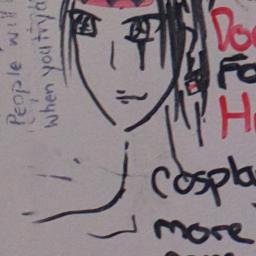 People wi
when you try
Do
Fo
H
cospla
more